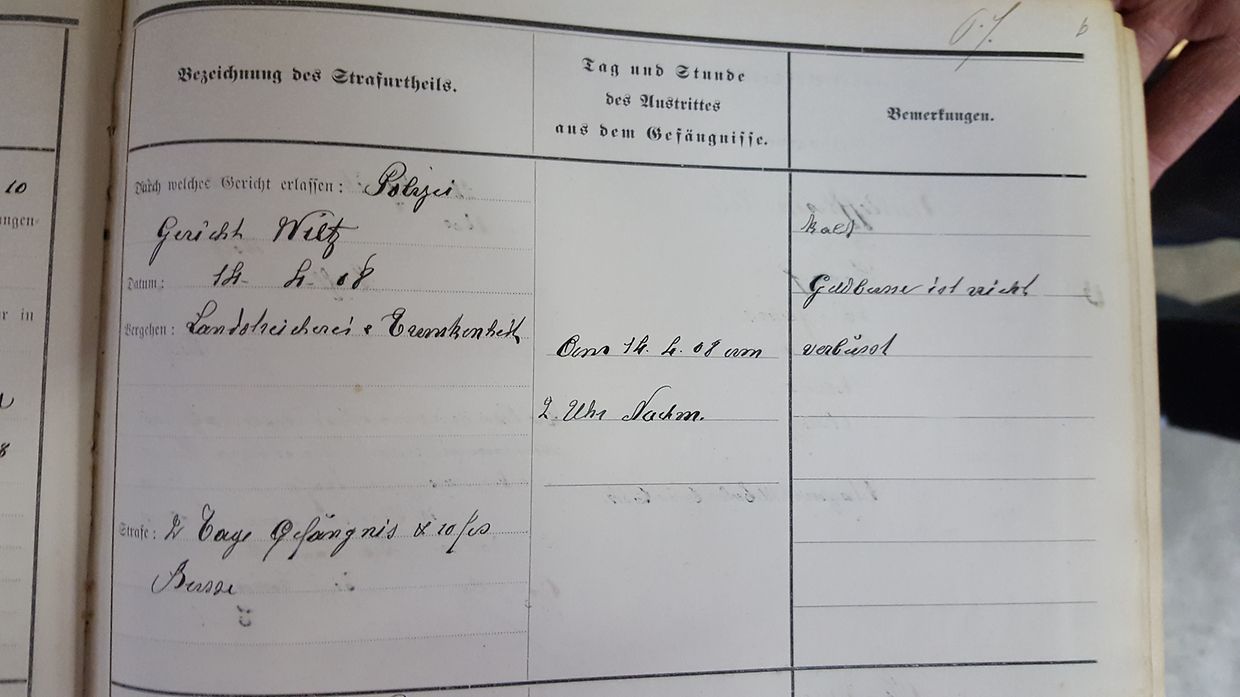 10
ngen
r in
8
6
Bezeichnung des Strafurtheils.
Durch welches Gericht erlassen: Polizei
Gericht Wiltz
Datum: 14. 4. 08
Vergehen: Landstreicherei & Trunkenheit
Strafe: 2 Tage Gefängnis & 10 fcs
Busse
Tag und Stunde
des Austrittes
aus dem Gefängnisse.
14. 4. 08 um
2. Uhr Nachm.
Bemerkungen.
Geldbusse ist nicht
verbüsst